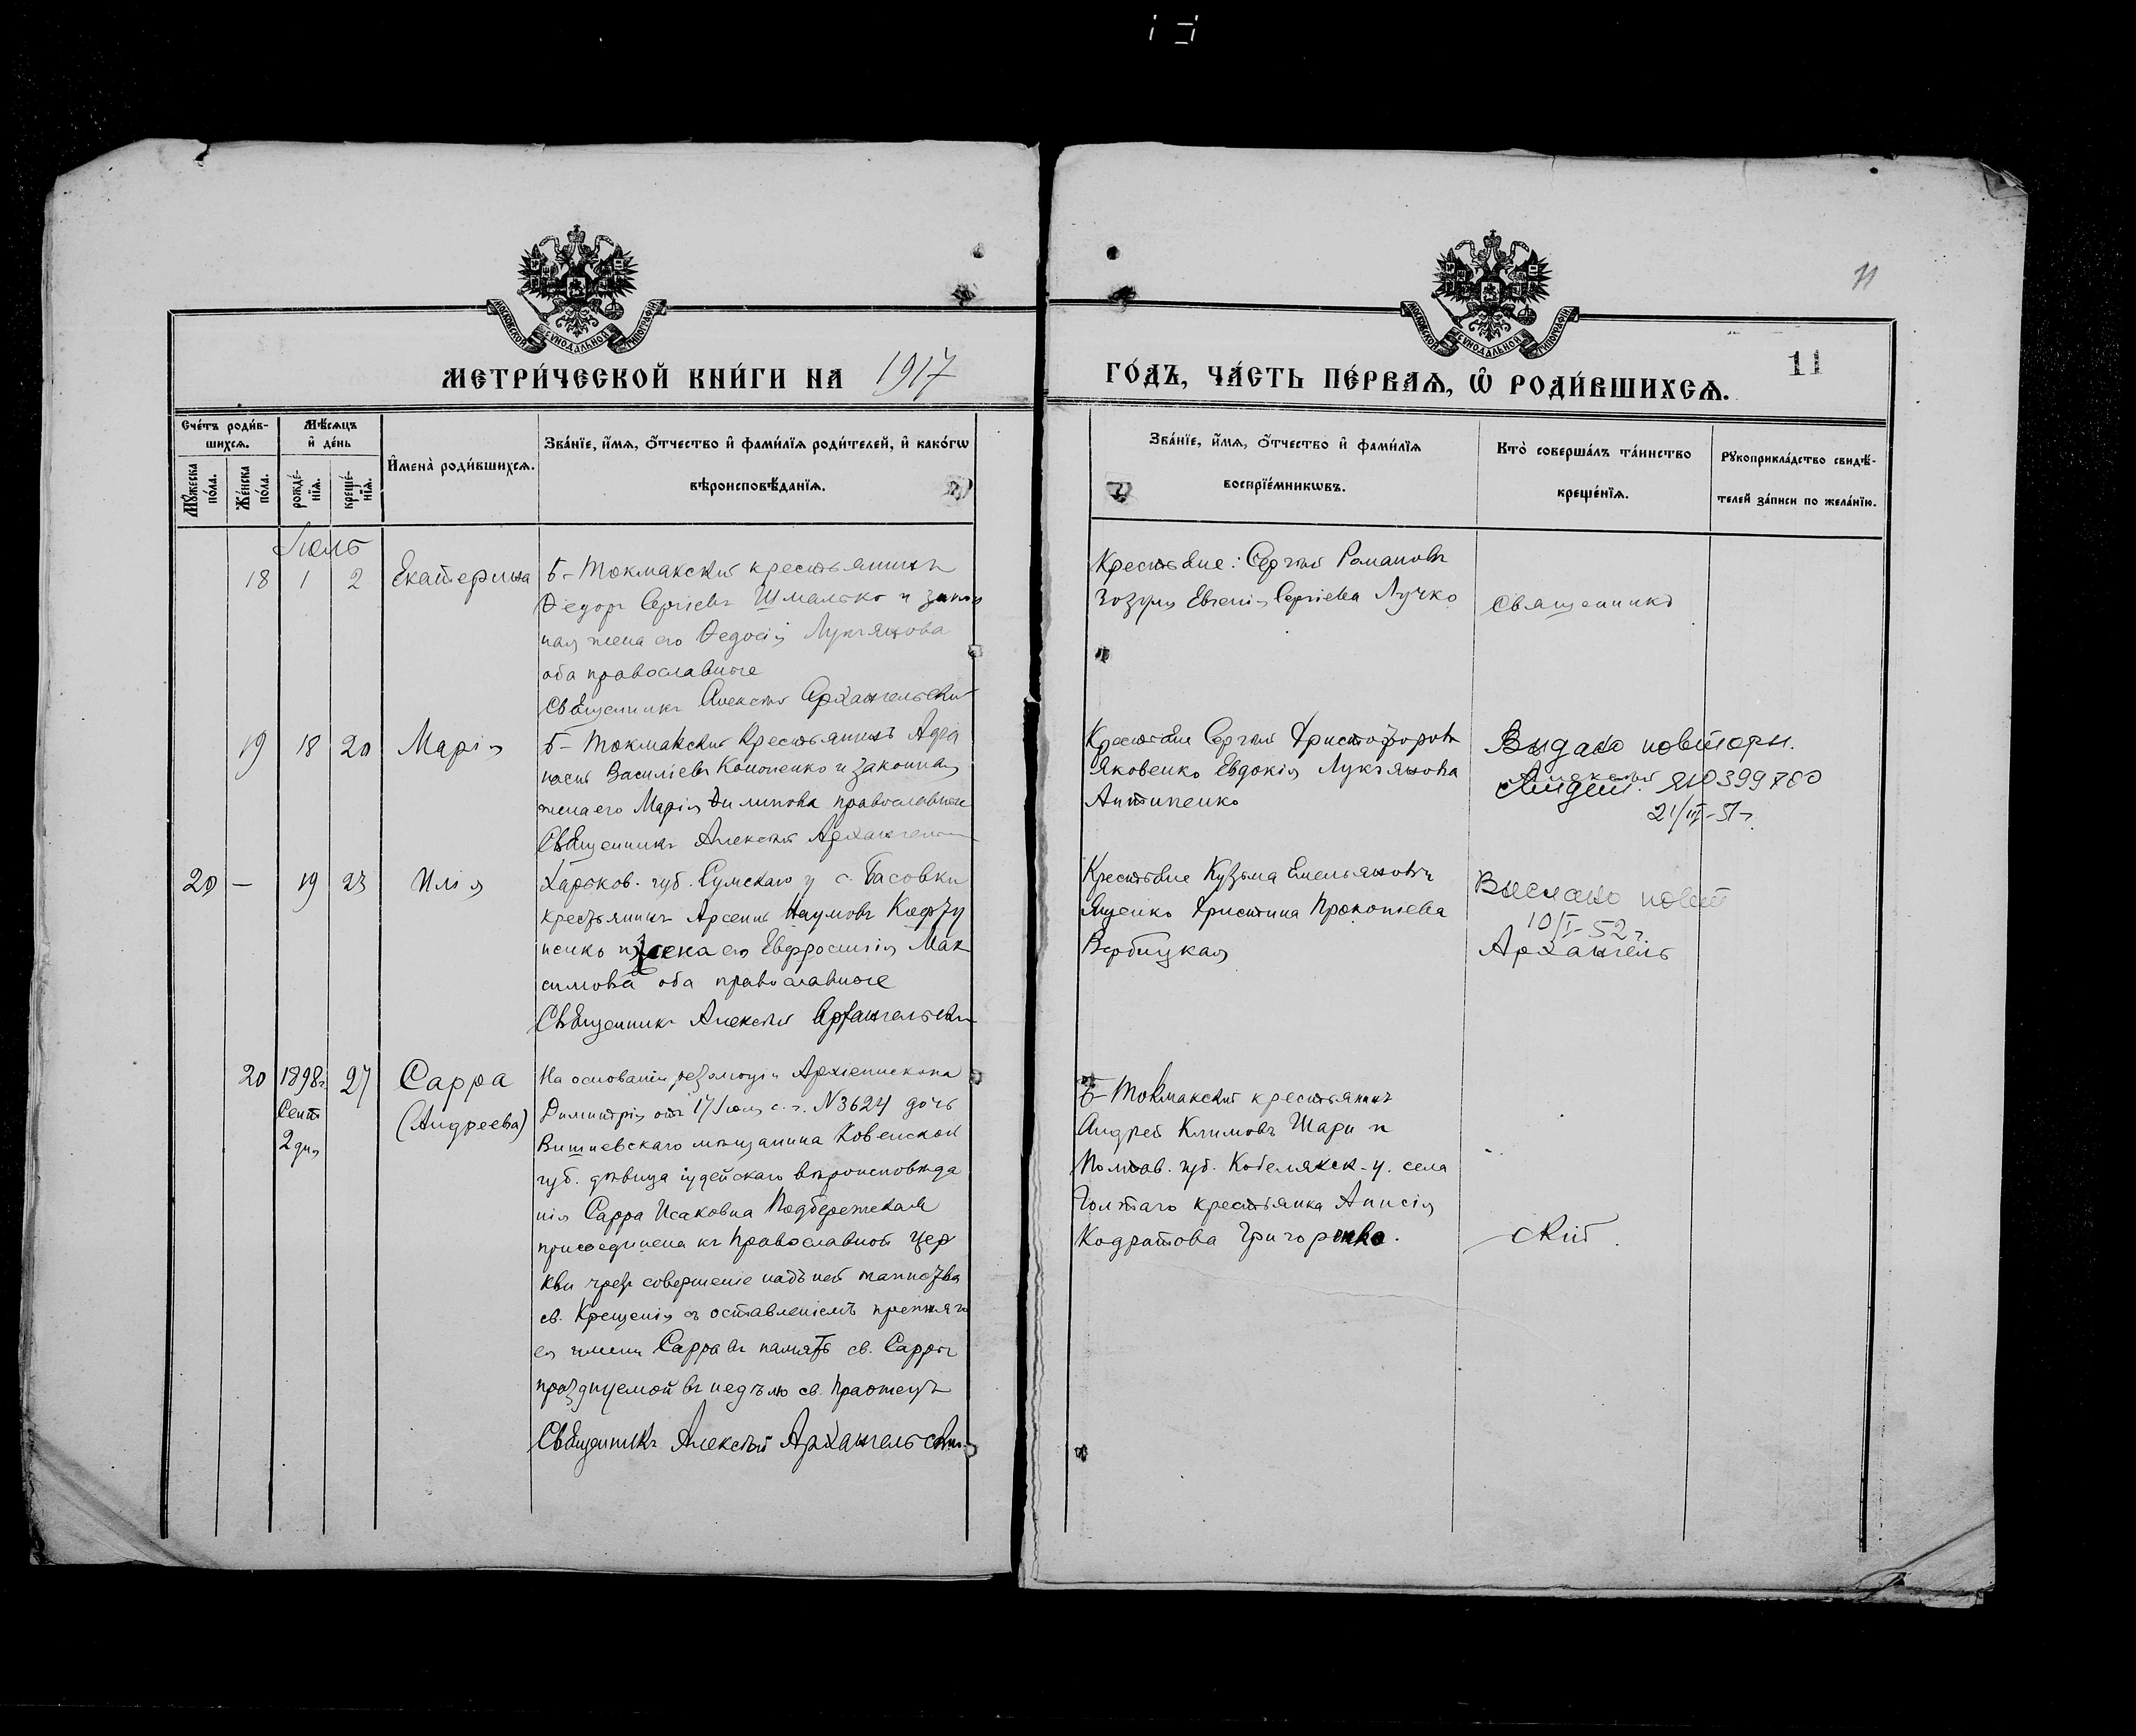 МЕТРИ́ЧЕСКОЙ КНИ́ГИ НА 1917
ГО́ДЪ, ЧА́СТЬ ПЕ́РВАѦ, Ѽ РОДИ́ВШИХСѦ.
11
11
МОСКОВСКОЙ СѴНОДАЛЬНОЙ ТИПОГРАФІИ
МОСКОВСКОЙ СѴНОДАЛЬНОЙ ТИПОГРАФІИ
Сче́тъ роди́в-
шихсѧ.
Мꙋ́жеска
по́ла.
Же́нска
по́ла.
Мѣ́сѧцъ
и҆ де́нь
рожде́-
нїѧ.
креще́-
нїѧ.
И҆мена̀ роди́вшихсѧ.
Зва́нїе, и҆́мѧ, ѻ҆́тчество и҆ фами́лїѧ роди́телей, и҆ како́гѡ
вѣроисповѣ́данїѧ.
Зва́нїе, и҆́мѧ, ѻ҆́тчество и҆ фами́лїѧ
воспрїе́мникѡвъ.
Кто̀ соверша́лъ та́инство
креще́нїѧ.
Рꙋкоприкла́дство свидѣ́-
телей за́писи по жела́нїю.
Іюль
18 1 2 Екатерина
Б-Токмакскій крестьянинъ
Ѳедоръ Сергіевъ Шмалько и закон
ная жена его Ѳедосія Лукьянова
оба православные
Священникъ Алексѣй Архангельскій
Крестьяне: Сергѣй Романовъ
Зозуля Евгенія Сергіева Лучко
Священникъ
19 18 20 Марія
Б-Токмакскій Крестьянинъ Афа
насій Василіевъ Кононенко и законная
жена его Марія Филипова православные
Священникъ Алексѣй Архангельскій
Крестьяне Сергѣй Христофоровъ
Яковенко Евдокія Лукьянова
Антипенко
Видано повторн.
Алексѣй
ЯЮ 399780
21/III-51 г.
20 — 19 23 Илія
Харьков. губ. Сумскаго у с. Басовки
крестьянинъ Арсеній Наумовъ
и жена его Евфросинія Мак
симова оба православные
Священникъ Алексѣй Архангельскій
Крестьяне Кузьма Емельяновъ
Яценко Христина Прокопіева
Вербицкая
Вислано повт
10/I-52 г.
Архангель
20 1898 г. 27 Сарра
Сент
2 дня
(Андреева)
На основаніи резолюціи Архіепископа
Димитрія отъ 17 Іюля с. г. № 3624 дочь
Вишневскаго мѣщанина Ковенской
губ. дѣвица іудейскаго вѣроисповѣда
нія Сарра Исаковна Подбережская
присоединена къ Православной Цер
кви чрезъ совершеніе надъ ней таинства
св. Крещенія съ оставленіемъ прежняго
ея имени Сарра въ память св. Сарры
празднуемой въ недѣлю св. Праотецъ
Священникъ Алексѣй Архангельскій
Б-Токмакскій крестьянинъ
Андрей Климовъ Шари и
Полтав. губ. Кобелякск. у. села
крестьянка Анисія
Кодратова Григоренко.
скій.